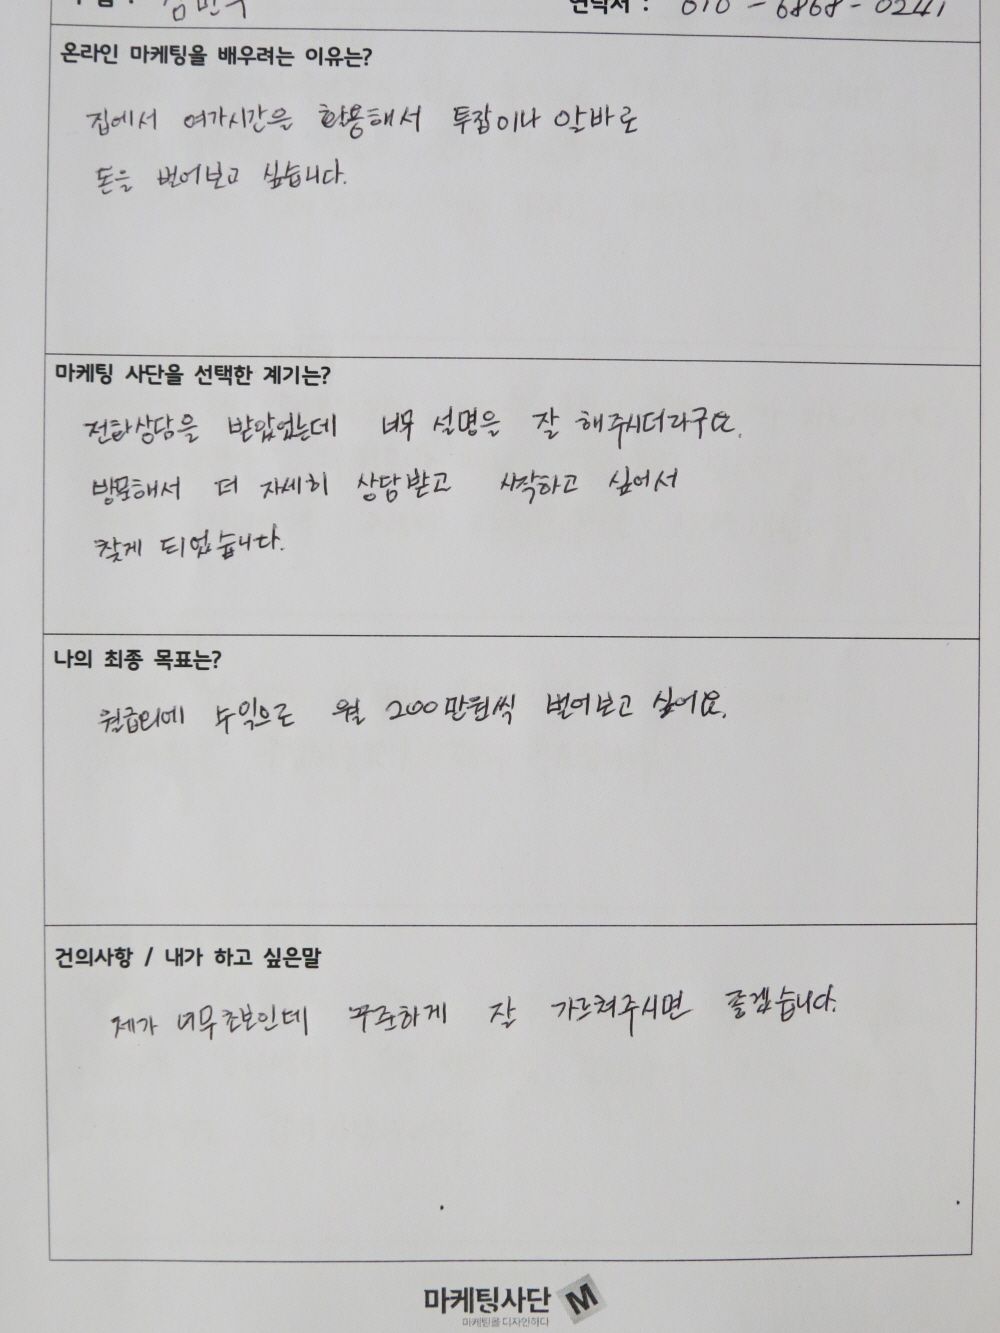 연락처 : 010 - 6868 - 0241
온라인 마케팅을 배우려는 이유는?
집에서 여가시간을 활용해서 투잡이나 알바로
돈을 벌어보고 싶습니다.
마케팅 사단을 선택한 계기는?
전화상담을 받았었는데 너무 설명을 잘 해주시더라구요.
방문해서 더 자세히 상담받고 시작하고 싶어서
찾게 되었습니다.
나의 최종 목표는?
월급외에 수익으로 월 200만원씩 벌어보고 싶어요.
건의사항 / 내가 하고 싶은말
제가 너무 초보인데 꾸준하게 잘 가르쳐주시면 좋겠습니다.
마케팅사단 M
마케팅을 디자인하다